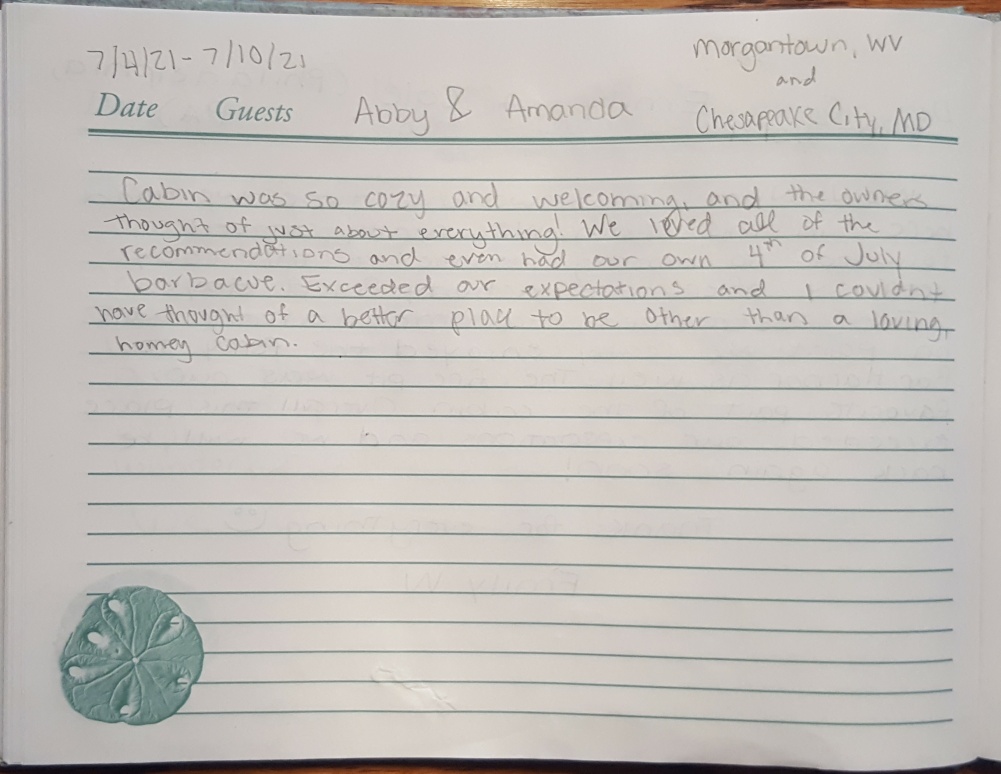 7/4/21 - 7/10/21
Morgantown, WV
and
Date Guests Abby & Amanda Chesapeake City, MD
Cabin was so cozy and welcoming, and the owners
thought of just about everything! We loved all of the
recommendations and even had our own 4th of July
barbacue. Exceeded our expectations and I couldn't
have thought of a better place to be other than a loving,
homey cabin.